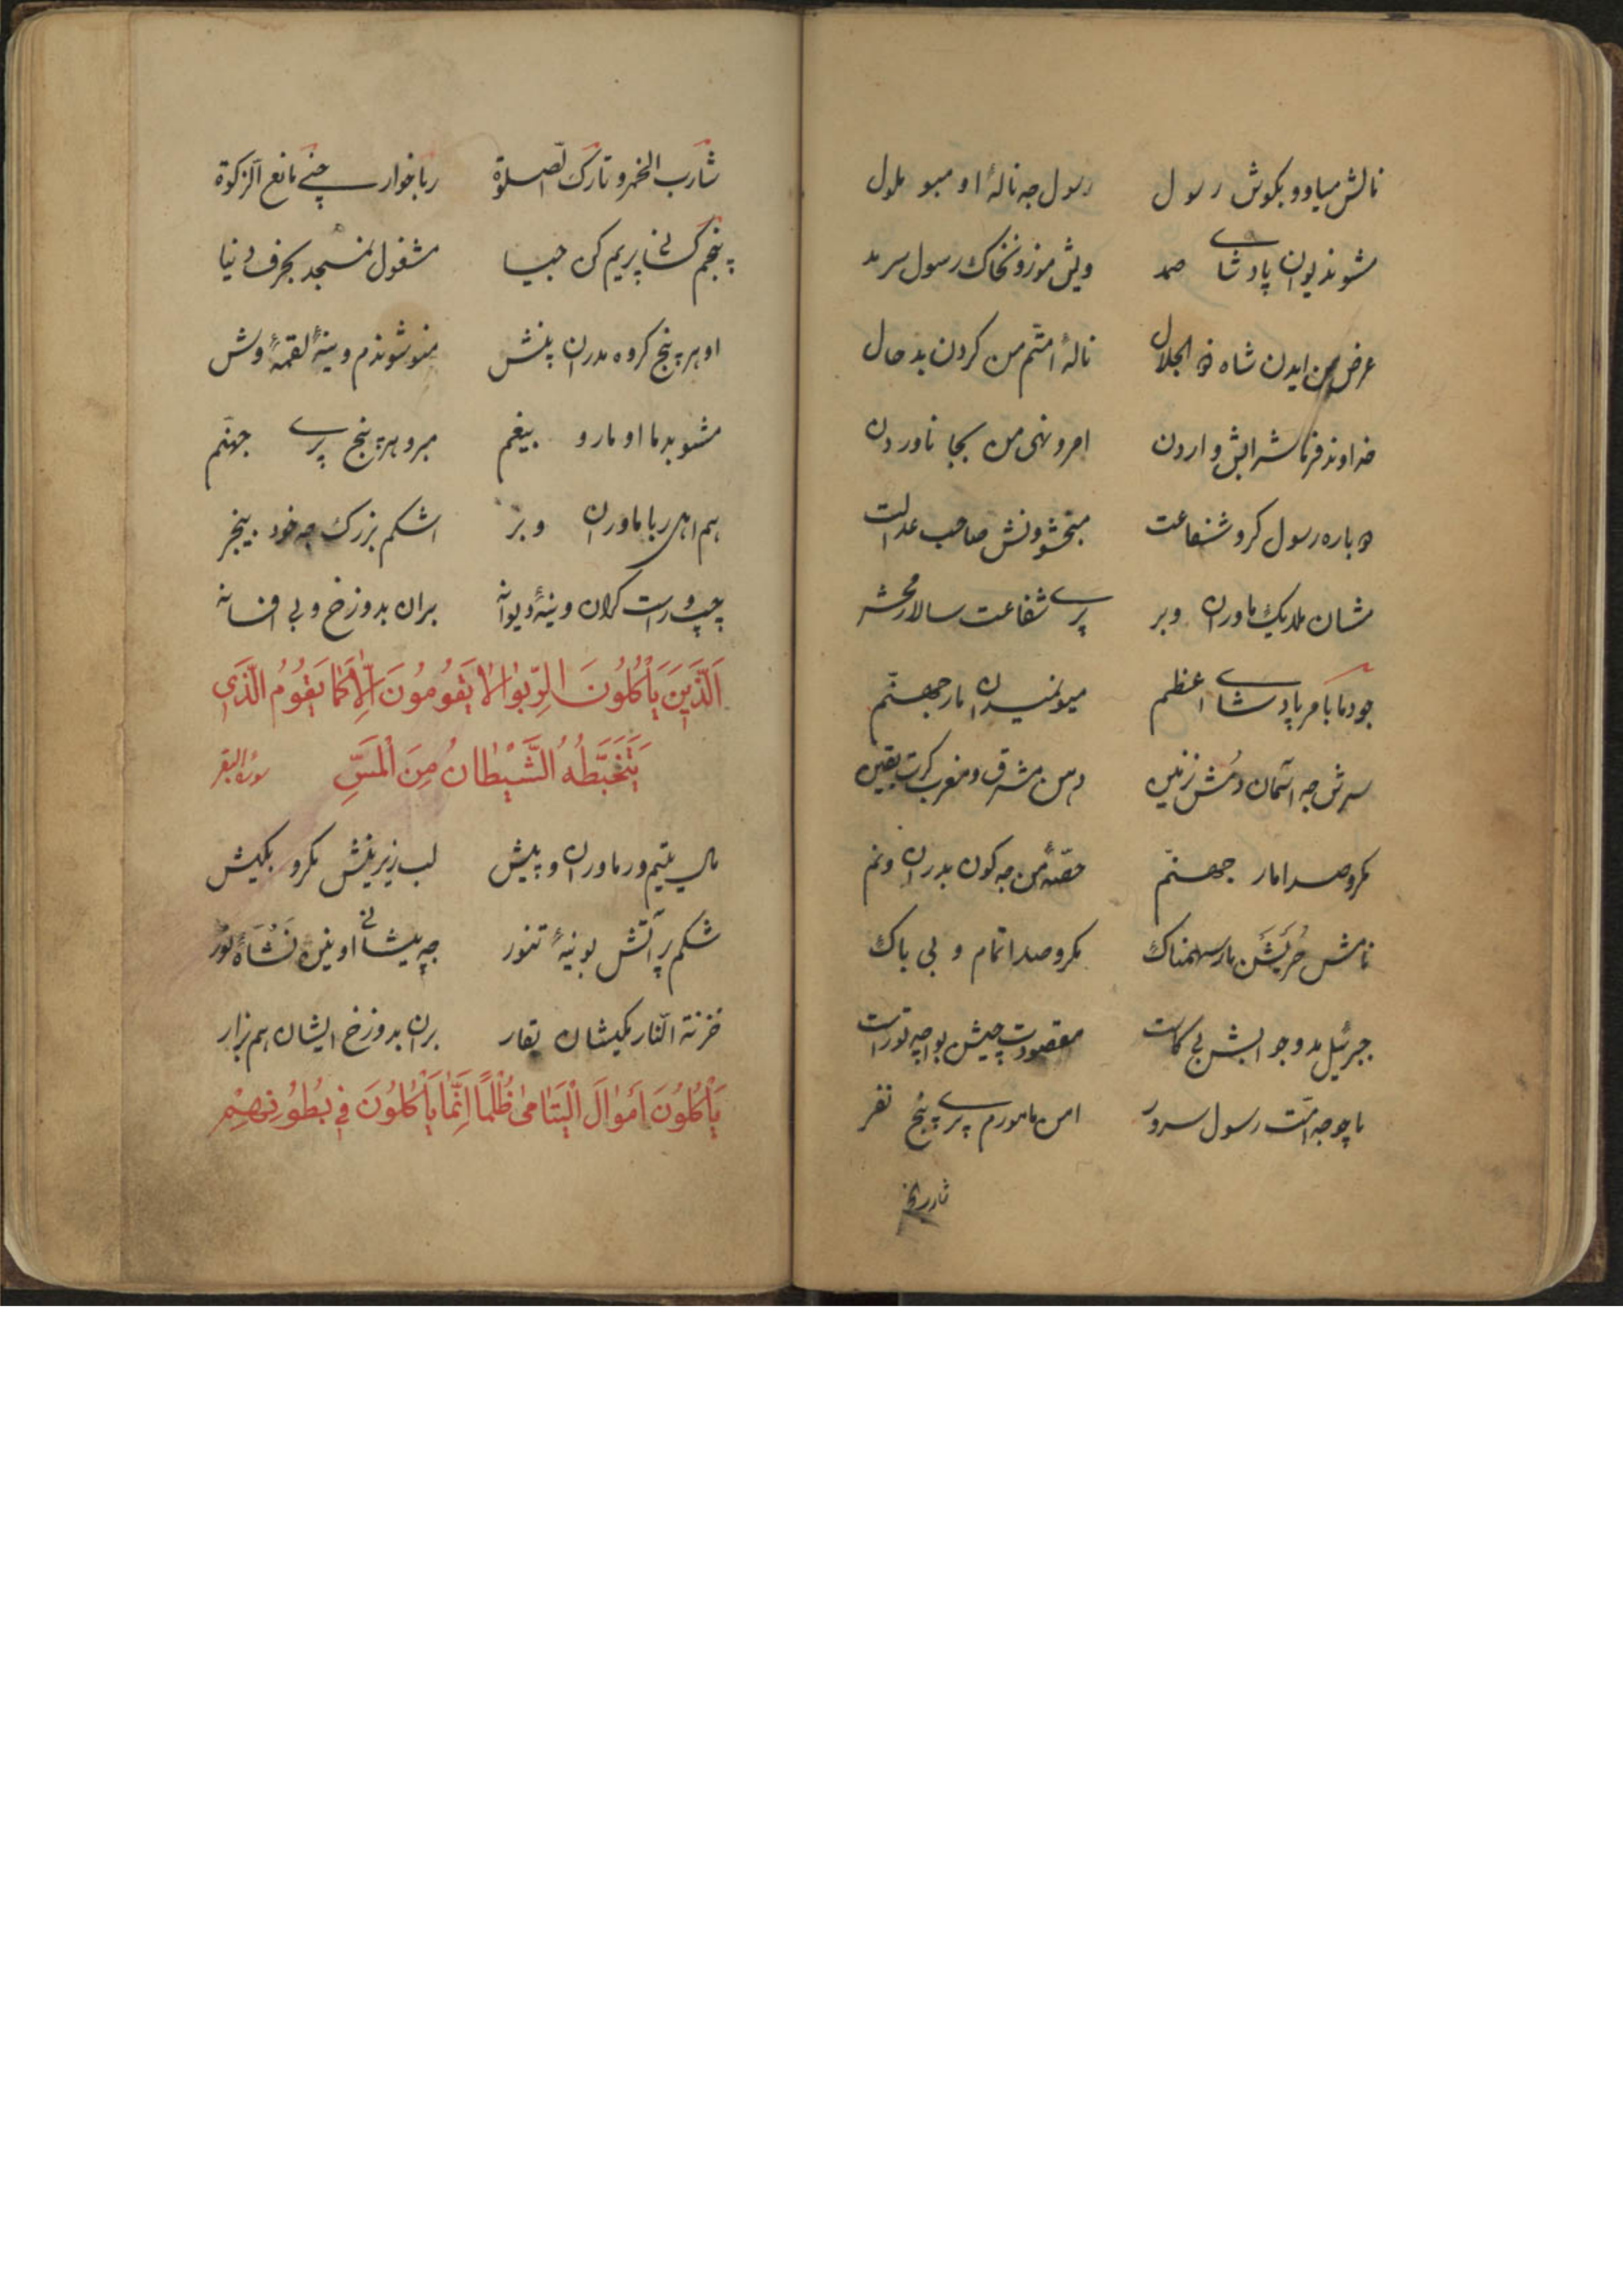 نالش میاوو بکوش رسول رسول جه نالهٔ او مبو ملول
مشو نه دیوان پادشای صمد ویش موزو نخاک رسول سرمد
عرض من ایدن شاه ذو الجلال نالهٔ امتم من کردن بد حال
خداوند فرما شرابش واردن امر و نهی من بجا ناوردن
دوباره رسول کرو شفاعت مبخشونش صاحب عدالت
مشان ملدیک ماوران وبر پری شفاعت سالار محشر
جودما بامر پادشای اعظم میونیران مار جهنم
سرش جه آسمان دمش نه زمین دهن مشرق و مغرب کرت یقین
مکرو صدا مار جهنم حصهٔ من جه کون بدران ونم
نامش حریش مار سهمناک مکرو صدا تمام و بی باک
جبرئیل مدو جوابش بی کاست مقصودت چیش بواچه تو راست
ماچو جه امت رسول سرور من مامورم پری پنج نفر
شارب الخمر و تارک الصلوة رباخوار چنی مانع الزکوة
پنجم کسانی پریم کن جیا مشغول نمسجد بحرف دنیا
او هر پنج کروه مدران پنش منوشوندم وینهٔ لقمهٔ وش
مشو بدما او مارو بیغم مبرو هر پنج پری جهنم
هم اهل ربا ماوران وبر اشکم بزرک جه خود بیخبر
چپ و راست کلان وینهٔ دیوانه بران بدوزخ و بی افسانه
اَلَّذينَ يَأْكُلُونَ الرِّبوٰا لاٰ يَقُومُونَ اِلاّٰ كَمٰا يَقُومُ الَّذي
يَتَخَبَّطُهُ الشَّيْطٰانُ مِنَ الْمَسِّ سورة البقر
مال یتیم ور ماوران و پیش لب زیرینش مکرو بکیش
شکم پر آتش بو نیهٔ تنور جه پیشانی او نین نشاهٔ نور
خزنة النار مکیشان بقار بران بدوزخ ایشان هم بزار
يَأْكُلُونَ اَمْوٰالَ الْيَتٰامىٰ ظُلْمًا اِنَّمٰا يَأْكُلُونَ فِي بُطُونِهِمْ